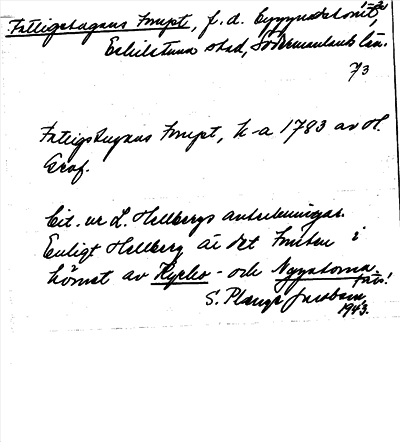 Fattigstugans Tompt, f. d. Byggnadstomt,
Eskilstuna stad, Södermanlands län.
73
Fattigstugans Tompt, k-a 1783 av H.
Graf.
Cit. ur L. Hellbergs anteckningar.
Enligt Hellberg är det tomten i
hörnet av Kyrko- och Nygatorna.
S. Plænge Jacobson
1943.